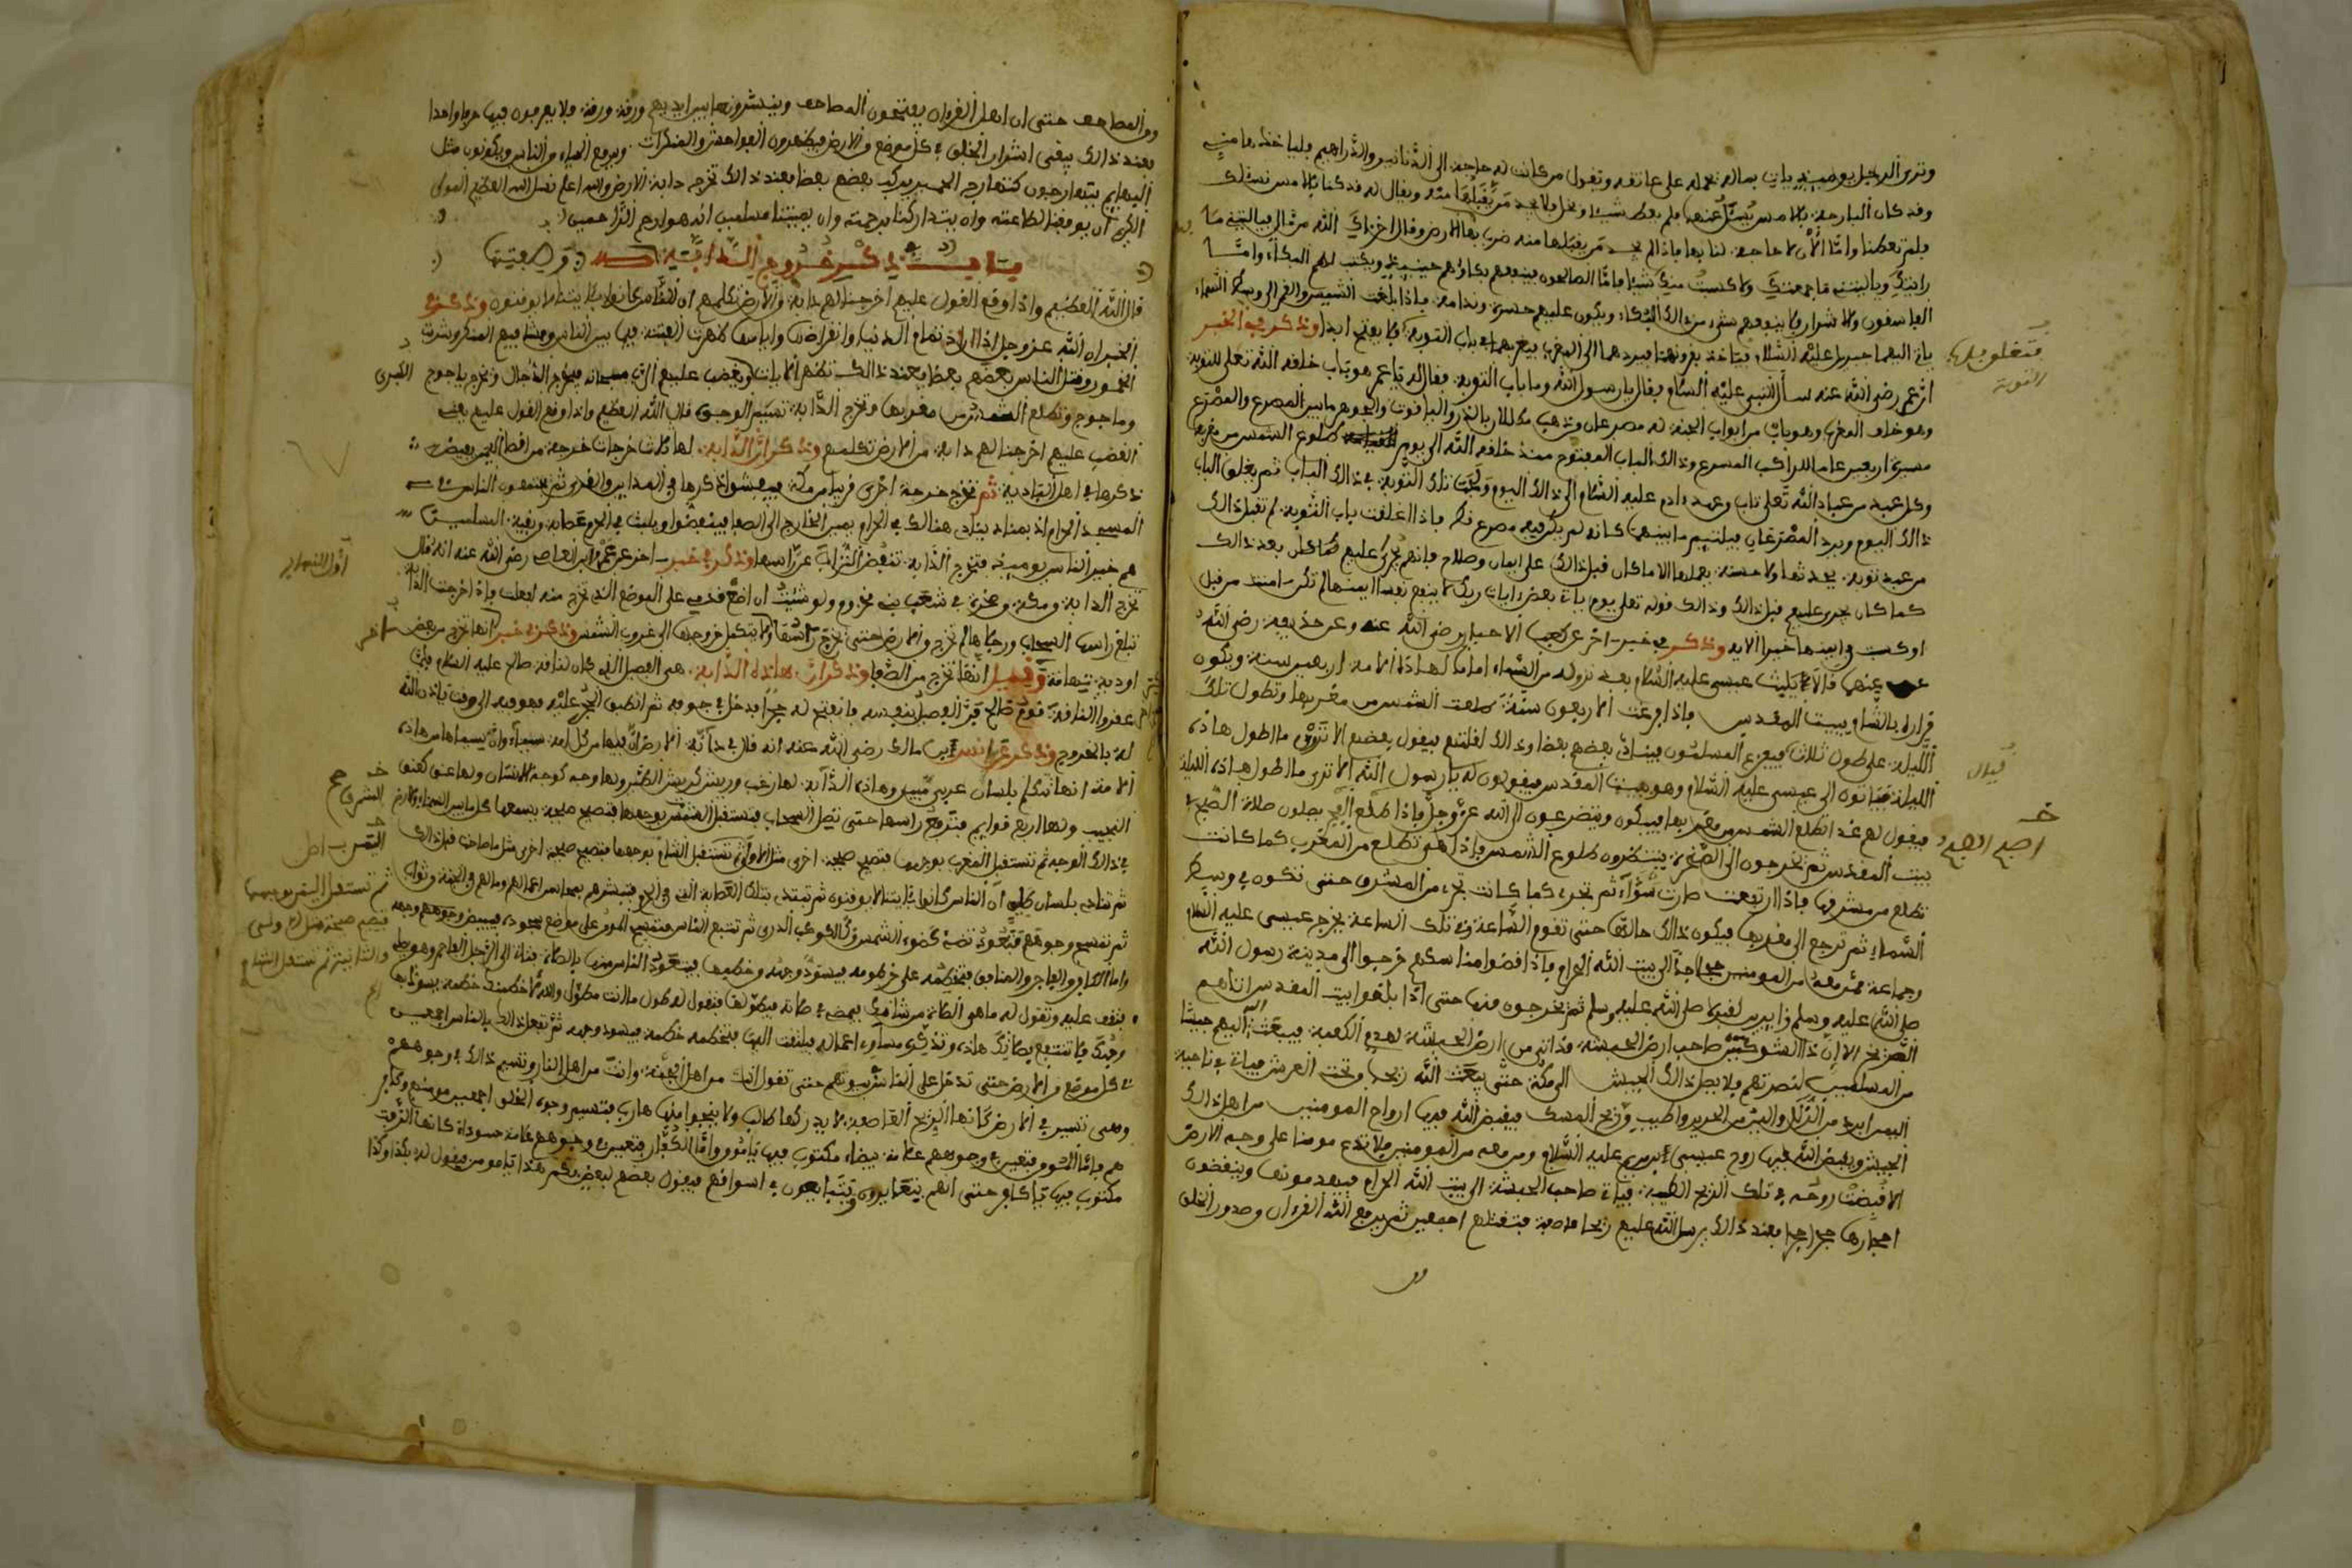 وترى الرجل يومئذ يات بماله يحمله على عاتقه ويقول من كانت له حاجة الى الدنانير والدراهم فلياخذها مني
وقد كان البارحة بلا من يسئل عنها فلم يعط شيئا وبخل ولا يجد من يقبلها منه ويقال له قد كنا بلامس نسئلك
فلم تعطنا واما الان لا حاجة لنا بها فاذا لم يجد من يقبلها منه ضرب بها الارض وقال اخزاك الله من مال فياليتني ما
رايتك وياليتني ما جمعتك ولا كسبت منك شيئا فاما الصالحون فينفعهم بكاؤهم حينئذ ويكتب لهم البكاء واما
الفاسقون ولا شرار فلا ينفعهم شيء من ذالك البكاء ويكون عليهم حسرة وندامة فاذا بلغت الشمس والقمر الى وسط السماء
يات اليهما جبريل عليه السلام فياخذ بقرونهما فيردهما الى المغرب فيغربهما في باب التوبة ولا يفتح ابدا وذكر في الخبر
ان عمر رضي الله عنه سأل النبي عليه السلام فقال يارسول الله وما باب التوبة فقال له يا عمر هو باب خلقه الله تعلى للتوبة
وهو خلف المغرب وهو باب من ابواب الجنة له مصرعان من ذهب مكللا بالدر والياقوت والجوهر ما بين المصرع والمصرع
مسيرة اربعين عاما للراكب المسرع وذالك الباب المفتوح منذ خلقه الله الى يوم طلوع الشمس من مغربها
وكل عبد من عباد الله تعلى تاب وعهد ءادم عليه السلام الى ذالك اليوم ولجت تلك التوبة في ذالك الباب ثم يغلق الباب
ذالك اليوم ويرد المصرعان فيلتيم ما بينهما كانه لم يكن فيه مصرع قط فاذا اغلقت باب التوبة لم تقبل ذالك
من عبد توبة يحدثها ولا حسنة يعملها الا ما كان قبل ذالك على ايمان وصلاح فانهم يجرى عليهم كما كان بعد ذالك
كما كان يجرى عليهم قبل ذالك وذالك قوله تعلى يوم يات بعض ءايات ربك لا ينفع نفسا ايمنها لم تكن ءامنت من قبل
او كسبت في ايمنها خيرا الاية وذكر في خبر ءاخر عن كعب الاحبار رضي الله عنه وعن حذيفة رضي الله
عنهما قالا يلبث عيسى عليه السلام بعد نزوله من السماء اماما لهاذه الامة اربعين سنة ويكون
قراره بالشام ببيت المقدس فاذا فرغت الاربعون سنة طلعت الشمس من مغربها وتطول تلك
الليلة على طول ثلاث فيفزع المسلمون فينادى بعضهم بعضا وذالك لقلتهم فيقول بعضهم الا ترون ما اطول هاذه
الليلة فيتون الى عيسى عليه السلام وهو ببيت المقدس فيقولون له يا رسول الله الا ترى ما اطول هاذه الليلة
فيقول لهم غدا تطلع الشمس من مغربها فيبكون ويتضرعون الى الله عز وجل فاذا طلع الفجر يصلون صلاة الصبح في
بيت المقدس ثم يخرجون الى الصخرة ينتظرون طلوع الشمس فاذا هي تطلع من المغرب كما كانت
تطلع من مشرقها فاذا ارتفعت صارت ثم تجرى كما كانت تجرى من المشرق حتى تكون في وسط
السماء ثم ترجع الى مغربها فيكون ذالك حالتها حتى تقوم الساعة وفي تلك الساعة يخرج عيسى عليه السلام
وجماعة ممن معه من المومنين الى بيت الله الحرام فاذا قضوا مناسكهم خرجوا الى مدينة رسول الله
صلى الله عليه وسلم زايرين لقبره صلى الله عليه وسلم ثم يخرجون منها حتى اذا بلغوا بيت المقدس اتاهم
الصريخ الا ان ذا الشويقتين صاحب ارض الحبشة قد اتى من ارض الحبشة لهدم الكعبة فيبعث اليهم جيشا
من المسلمين لنصرتهم فلا يصل ذالك الجيش الى مكة حتى يبعث الله ريحا وتحت العرش فياة في ناحية
اليمن ابرد من الثلج والين من الحرير واطيب من ريح المسك فيقبض الله فيها ارواح المومنين من اهل ذالك
الجيش ويقبض الله فيها روح عيسى ابن مريم عليه السلام ومن معه من المومنين فلا تدع مومنا على وجه الارض
الا قبضت روحه في تلك الريح الطيبة فياة صاحب الحبشة الى بيت الله الحرام فيهدمونها وينقضون
احجارها حجرا حجرا فعند ذالك يرسل الله عليهم ريحا عاصفة فتقتلهم اجمعين ثم يرفع الله القرءان وصدور الخلق
فتغلو بها
التوبة
فبدل
خـ
اصبح الصبح
ومن المصاحف حتى ان اهل القرءان يفتحون المصاحف وينشرونها بين ايديهم ورقة ورقة ولا يعرفون فيها حرفا واحدا
فعند ذالك يبقى اشرار الخلق في كل موضع من الارض فيظهرون الفواحش والمنكرات ويرفع الحياء من الناس ويكونون مثل
البهايم يتهارجون كتهارج الحمير يركب بعضهم بعضا فعند ذالك تخرج دابة الارض والله اعلم نسئل الله العظيم المولى
الكريم ان يوفقنا لطاعته وان يتداركنا برحمته وان يميتنا مسلمين انه هو ارحم الراحمين
باب في ذكر خروج الدابة وصفتها
قال الله العظيم واذا وقع القول عليهم اخرجنا لهم دابة من الارض تكلمهم ان الناس كانوا بئايتنا لا يوقنون وذكر في
الخبر ان الله عز وجل اذا اراد تمام الدنيا وانقراضها واياسها ظهرت الفتنة فيما بين الناس وفشا فيهم المنكر وشرب
الخمور وقتل الناس بعضهم بعضا فعند ذالك تظهر الايات ويغضب عليهم الرب سبحانه فيخرج الدجال وتخرج ياجوج
وماجوج وتطلع الشمس من مغربها وتخرج الدابة تمييز الوجوه قال الله العظيم واذا وقع القول عليهم يعني
الغضب عليهم اخرجنا لهم دابة من الارض تكلمهم وذكر ان الدابة لها ثلاث خرجات خرجة من اقصا اليمن
ذكرها في اهل البادية ثم تخرج خرجة اخرى قريبا من مكة فيفشوا ذكرها في المداين والقرى ثم يجتمعون الناس في
المسجد الحرام اذ بمناد ينادى هنالك في الحرام يمين الخارج الى الصفا فينفضوا ويلبث في الحرم عصابة وبقية المسلمين
هم خير الناس يومئذ فتخرج الدابة تنفض التراب عن راسها وذكر في خبر ءاخر عن عمرو ابن العاص رضي الله عنه انه قال
تخرج الدابة ومكة وصخرة في شعب بني مخزوم ولو شئت ان اضع قدمي على الموضع الذي تخرج منه لفعلت فاذا خرجت الدابة
تبلغ راسها السحاب ورجلاها لم تخرج من الارض حتى تخرج ولا يتكمل خروجها الى غروب الشمس وذكر في خبر ءاخر انها تخرج من بعض
اودية تهامة وقيل انها تخرج من الصفا وذكر ان هاذه الدابة هي الفصيل الذي كان لناقة صالح عليه السلام فلما
عقروا الناقة قوم صالح فر الفصيل بنفسه فانفتح له حجرا فدخل في جوفه ثم انطبق الحجر عليه فهو فيه الى وقت ياذن الله
له بالخروج وذكر عن انس ابن مالك رضي الله عنه انه قال في دابة الارض ان فيها من كل امة سيماء وان سيماها من هاذه
الامة انها تتكلم بلسان عربي مبين وهاذه الدابة لها زغب وريش كريش الطير ولها وجه كوجه الانسان ولها عنق كعنق
النجيب ولها اربع قوايم فترفع راسها حتى تصل السحاب فتستقبل الشمس بوجهها فتصيح صيحة يسمعها كل ما بين السماء والارض
في ذالك الوجه ثم تستقبل المغرب بوجهها فتصيح صيحة اخرى مثل الاولى ثم تستقبل الشام بوجهها فتصيح صيحة اخرى مثل ما صاحت قبل ذالك
ثم تنادى بلسان ان الناس كانوا بئايتنا لا يوقنون ثم تبتدى بتلك العصابة التى في الحرم فتبشرهم بمحاسن اعمالهم ومالهم في الجنة وثواب
ثم تقسيم وجوههم فتعود تضئ كضوء الشمس وكالكوكب الدرى ثم تتبع الناس فتقسيم المومن على موضع سجوده فيبيض وجهه
واما الكافر والفاجر والمنافق فتخطمه على خرطومه فيسود وجهه وخطمها فيتعوذ الناس منها بالصلاة فتاة الى الرجل الفاجر وهو يصلى
فتقف عليه وتقول له ماهي الصلاة من شانك فيمضي في صلاته فيطولها فتقول له طول ما انت مطول والله لاخطمنك خطمة يسود بها
وجهك ولا تنتفع بصلاتك هاذه وتذكره مساوي اعماله فيلتفت اليها فتخطمه خطمة فيسود وجهه ثم تفعل ذالك بالناس اجمعين
في كل موضع من الارض حتى تدخل على الناس بيوتهم حتى تقول انت من اهل الجنة وانت من اهل النار وتسيم ذالك في وجوههم
وهي تسير في الارض كانها الريح العاصفة لا يدركها طالب ولا ينجوا منها هارب فتسيم وجوه الخلق اجمعين مومنهم وكافر
هم فاما المومن فتصير في وجوههم علامة بيضاء مكتوب فيها يا مومن واما الكفار فتصير في وجوههم علامة سوداء كانها الزفت
مكتوب فيها يا كافر حتى انهم يتعايرون ويتبايعون في اسواقهم فيقول بعضهم لبعض بكم هذا يا مومن فيقول له بكذا وكذا
الكبرى
اول النهار
خـ
المشرق صح
الشمس اصل
ثم تستقبل اليمن بوجهها
فتصيح صيحة مثل الاولى
والثانية ثم تستقبل الشام